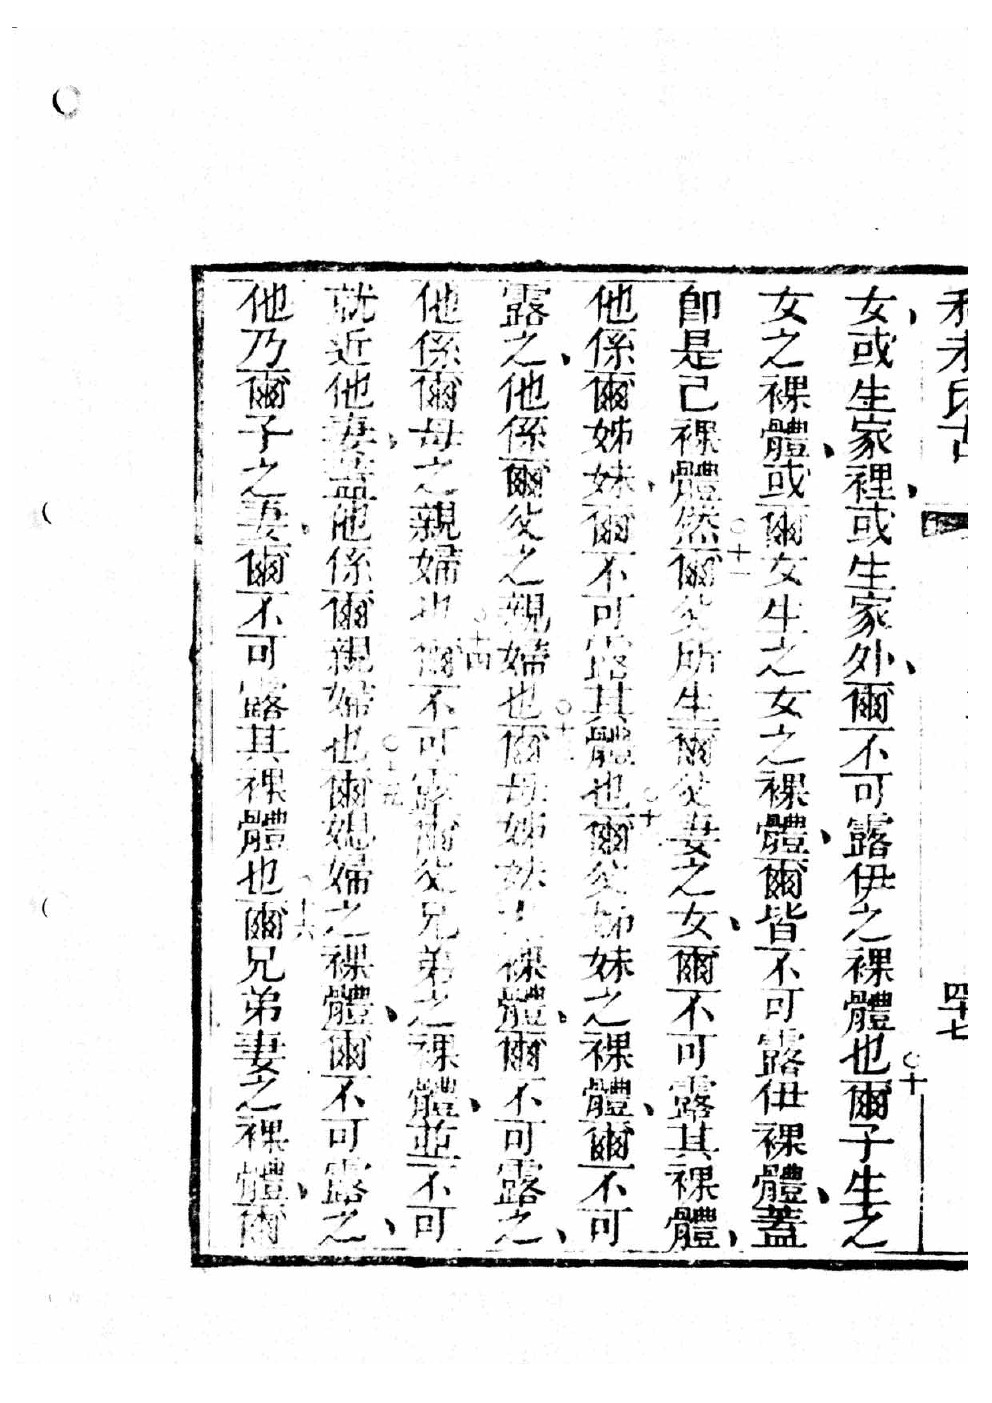 四十七
女、或生家裡、或生家外、爾不可露伊之裸體也○十爾子生之
女之裸體、或爾女生之女之裸體、爾皆不可露伊裸體、蓋
卽是己裸體○十一然爾父所生爾父妻之女、爾不可露其裸體、
他係爾姊妹、爾不可露其體也○十爾父姊妹之裸體、爾不可
露之、他係爾父之親婦也○十爾母姊妹之裸體、爾不可露之、
他係爾母之親婦也○十四爾不可露爾父兄弟之裸體、並不可
就近他妻、蓋他係爾親婦也○十五爾媳婦之裸體、爾不可露之、
他乃爾子之妻、爾不可露其裸體也○十六爾兄弟妻之裸體、爾